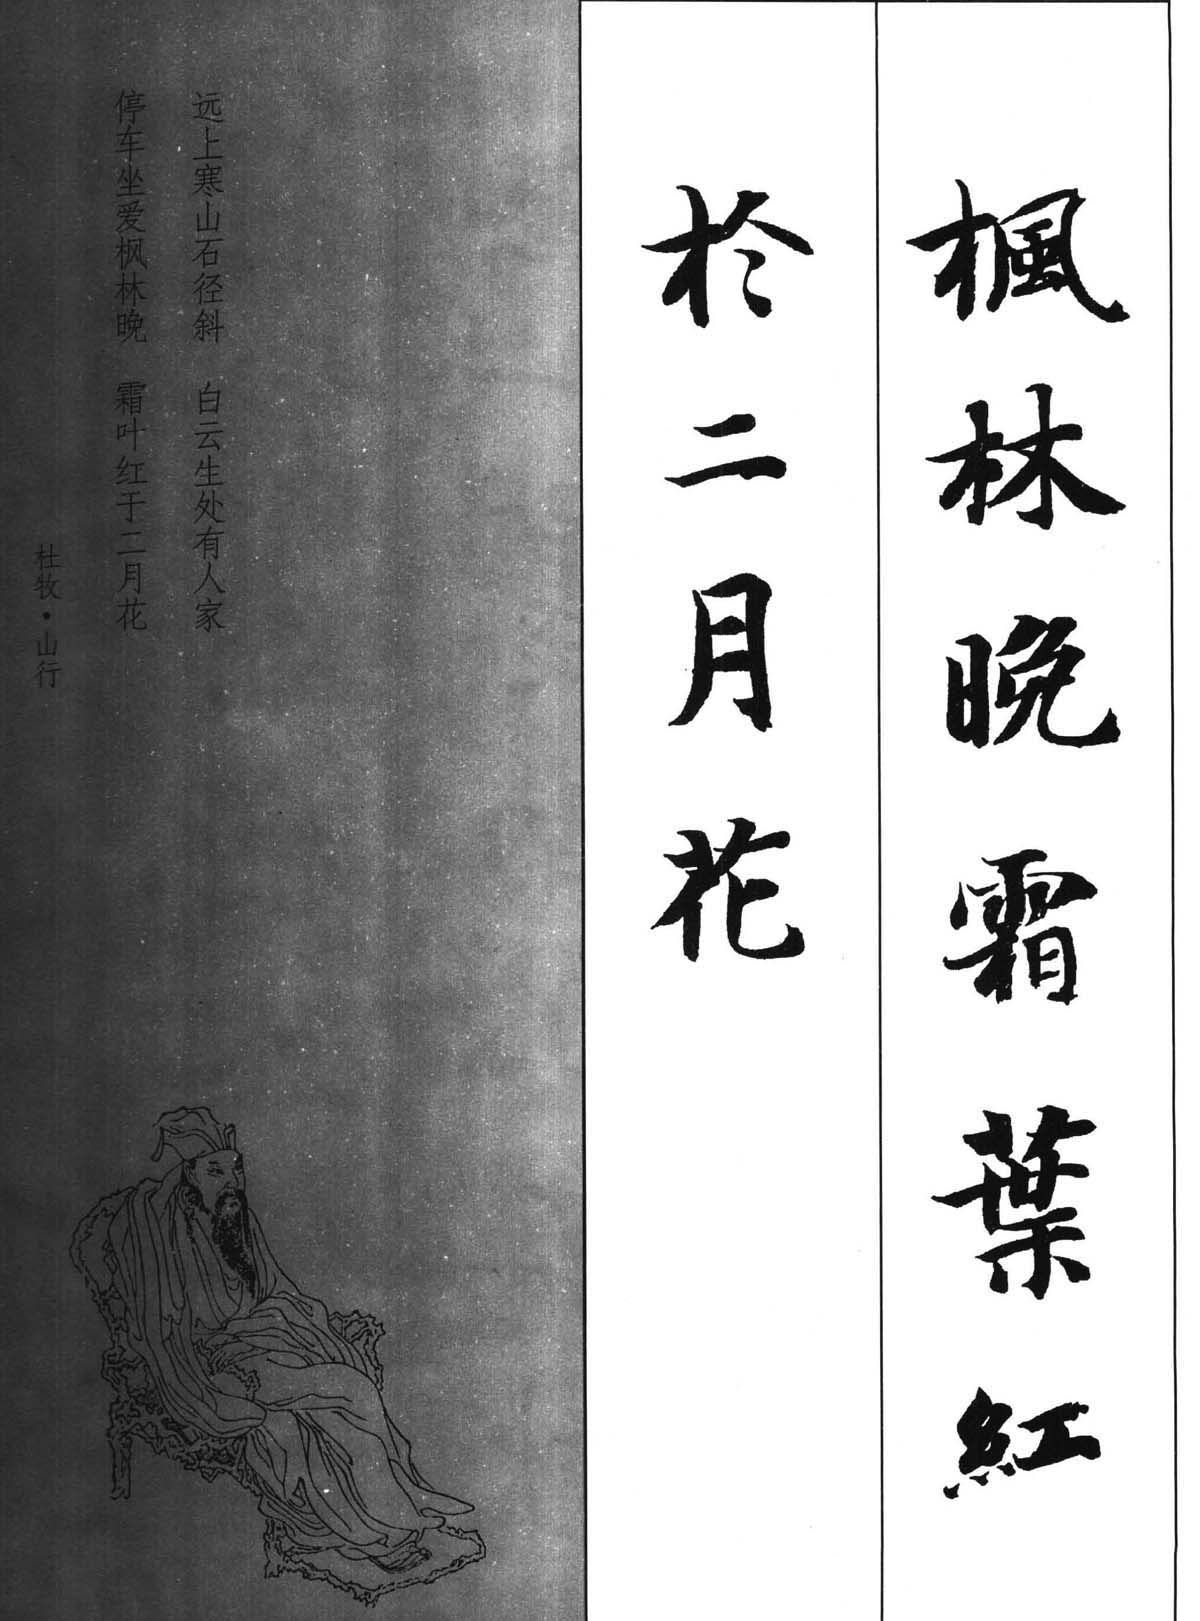 楓林晚霜葉紅
於二月花
远上寒山石径斜 白云生处有人家
停车坐爱枫林晚 霜叶红于二月花
杜牧·山行